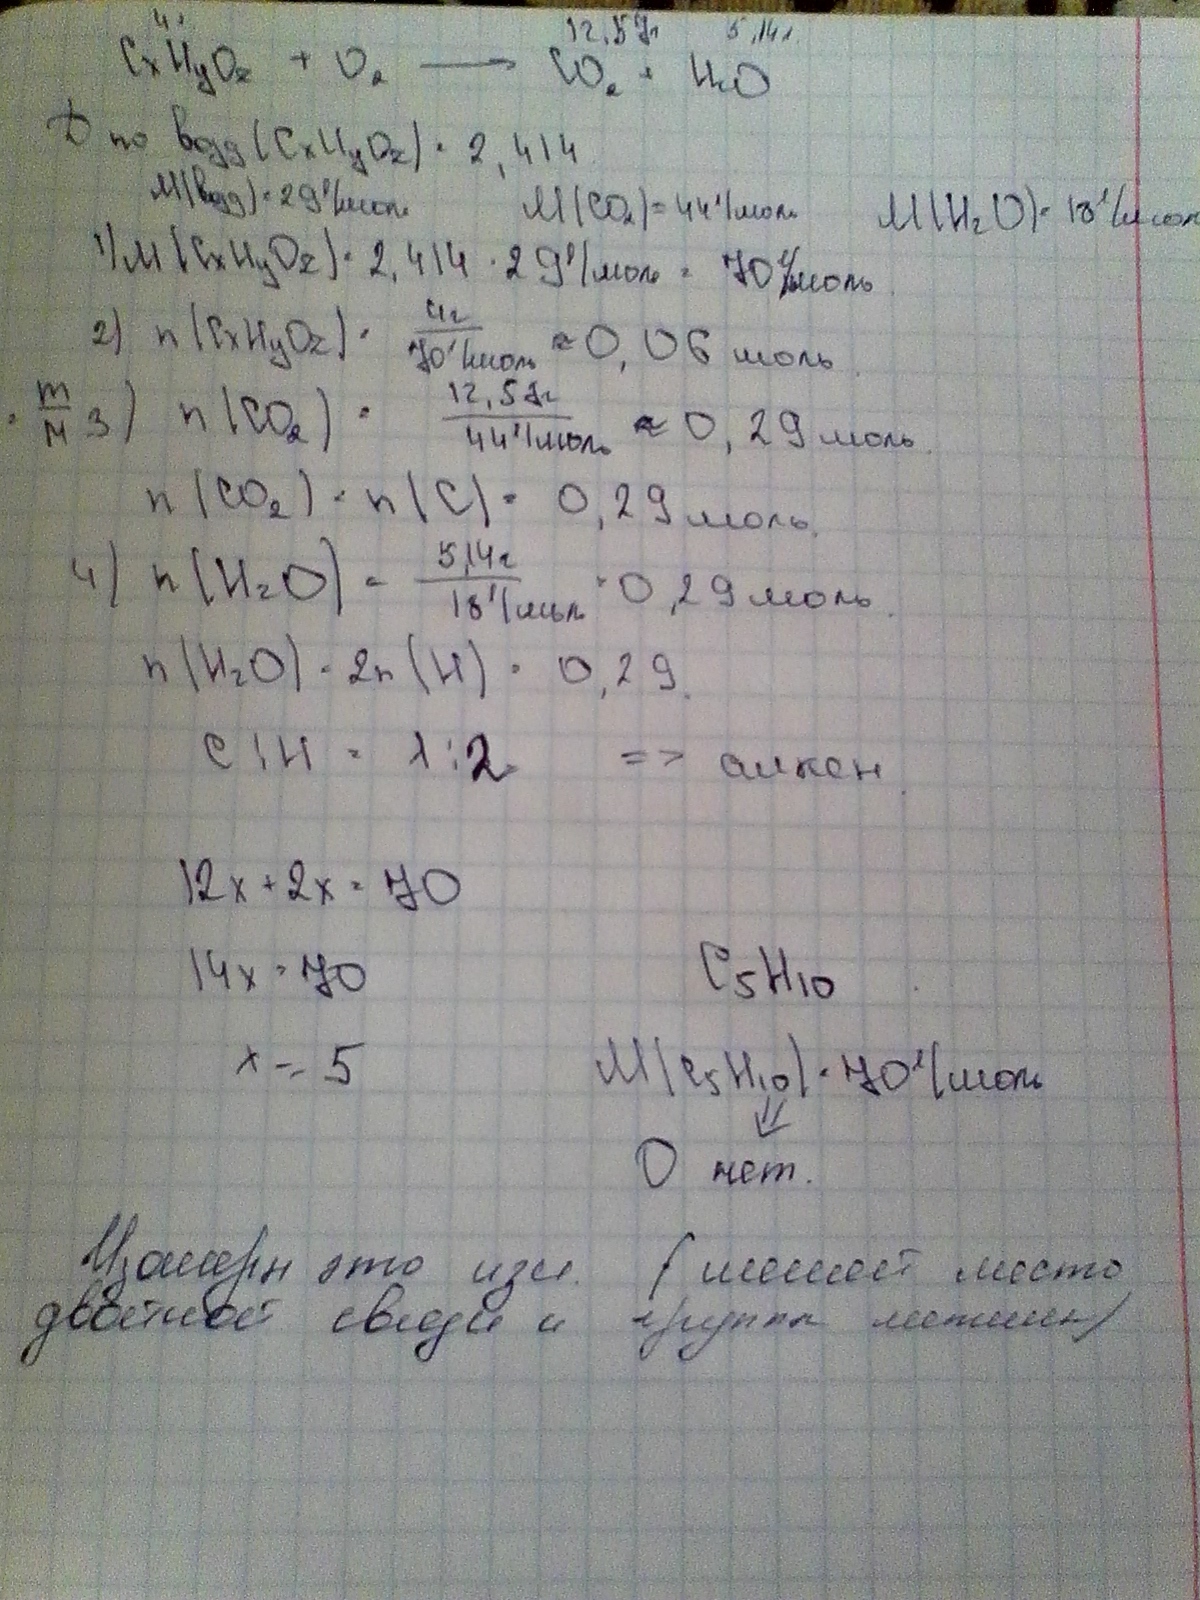 4г 12,57г 5,14г
CxHyOz + O2 → CO2 + H2O
D по возд (CxHyOz) = 2,414
M(возд) = 29 г/моль M(CO2) = 44 г/моль M(H2O) = 18 г/моль
1) M(CxHyOz) = 2,414 · 29 г/моль = 70 г/моль.
2) n(CxHyOz) = 4г / 70 г/моль ≈ 0,06 моль.
= m/M 3) n(CO2) = 12,57г / 44 г/моль ≈ 0,29 моль.
n(CO2) = n(C) = 0,29 моль.
4) n(H2O) = 5,14г / 18 г/моль = 0,29 моль.
n(H2O) = 2n(H) = 0,29.
C:H = 1:2 => алкен.
12x + 2x = 70
14x = 70 C5H10
x = 5 M(C5H10) = 70 г/моль
⇓
O нет.
Изомеры это изм. (меняй место
двойной связи и группы метильн)